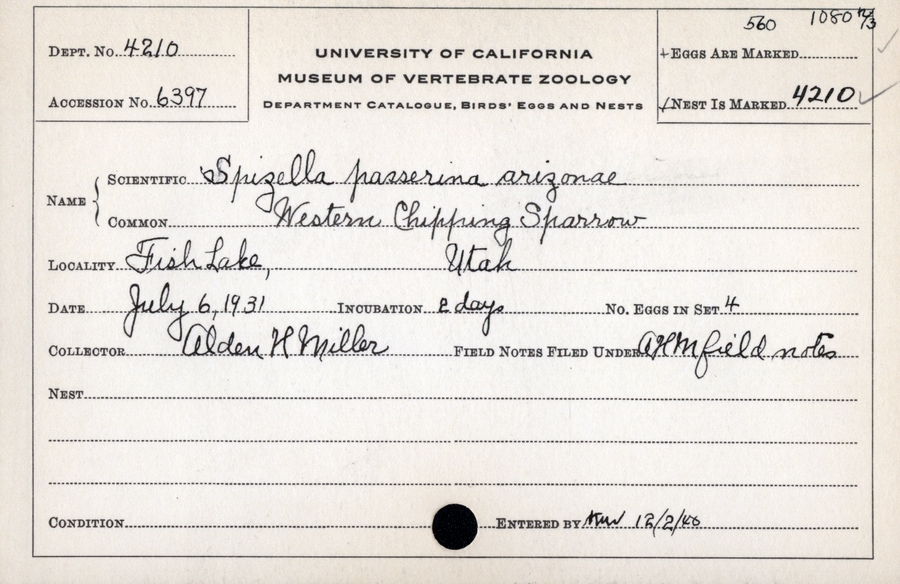 560 1080 2/3
DEPT. NO. 4210
UNIVERSITY OF CALIFORNIA
+EGGS ARE MARKED
MUSEUM OF VERTEBRATE ZOOLOGY
ACCESSION NO. 6397
DEPARTMENT CATALOGUE, BIRDS' EGGS AND NESTS
NEST IS MARKED 4210
NAME
SCIENTIFIC Spizella passerina arizonae
COMMON Western Chipping Sparrow
LOCALITY Fish Lake, Utah
DATE July 6, 1931 INCUBATION 2 days NO. EGGS IN SET 4
COLLECTOR Alden H Miller FIELD NOTES FILED UNDER AHM field notes
NEST
CONDITION ENTERED BY 12/2/40